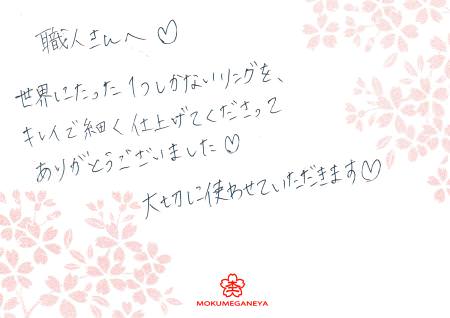 職人さんへ♡
世界にたった1つしかないリングを、
キレイで細く仕上げてくださって
ありがとうございました♡
大切に使わせていただきます♡
MOKUMEGANEYA